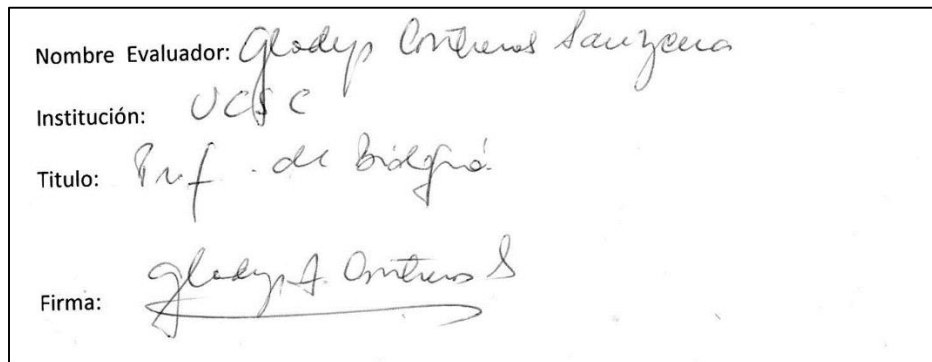 Nombre Evaluador: Gladys Contreras Sanzana
Institución: UCSC
Titulo: Prof. de Biología
Firma: Gladys A. Contreras S